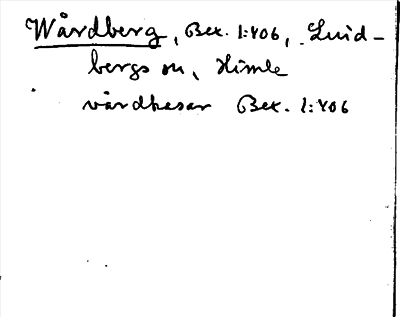 Wårdberg, Bex. 1:406, Lind-
bergs sn, Himle
vårdkasar Bex. 1:406